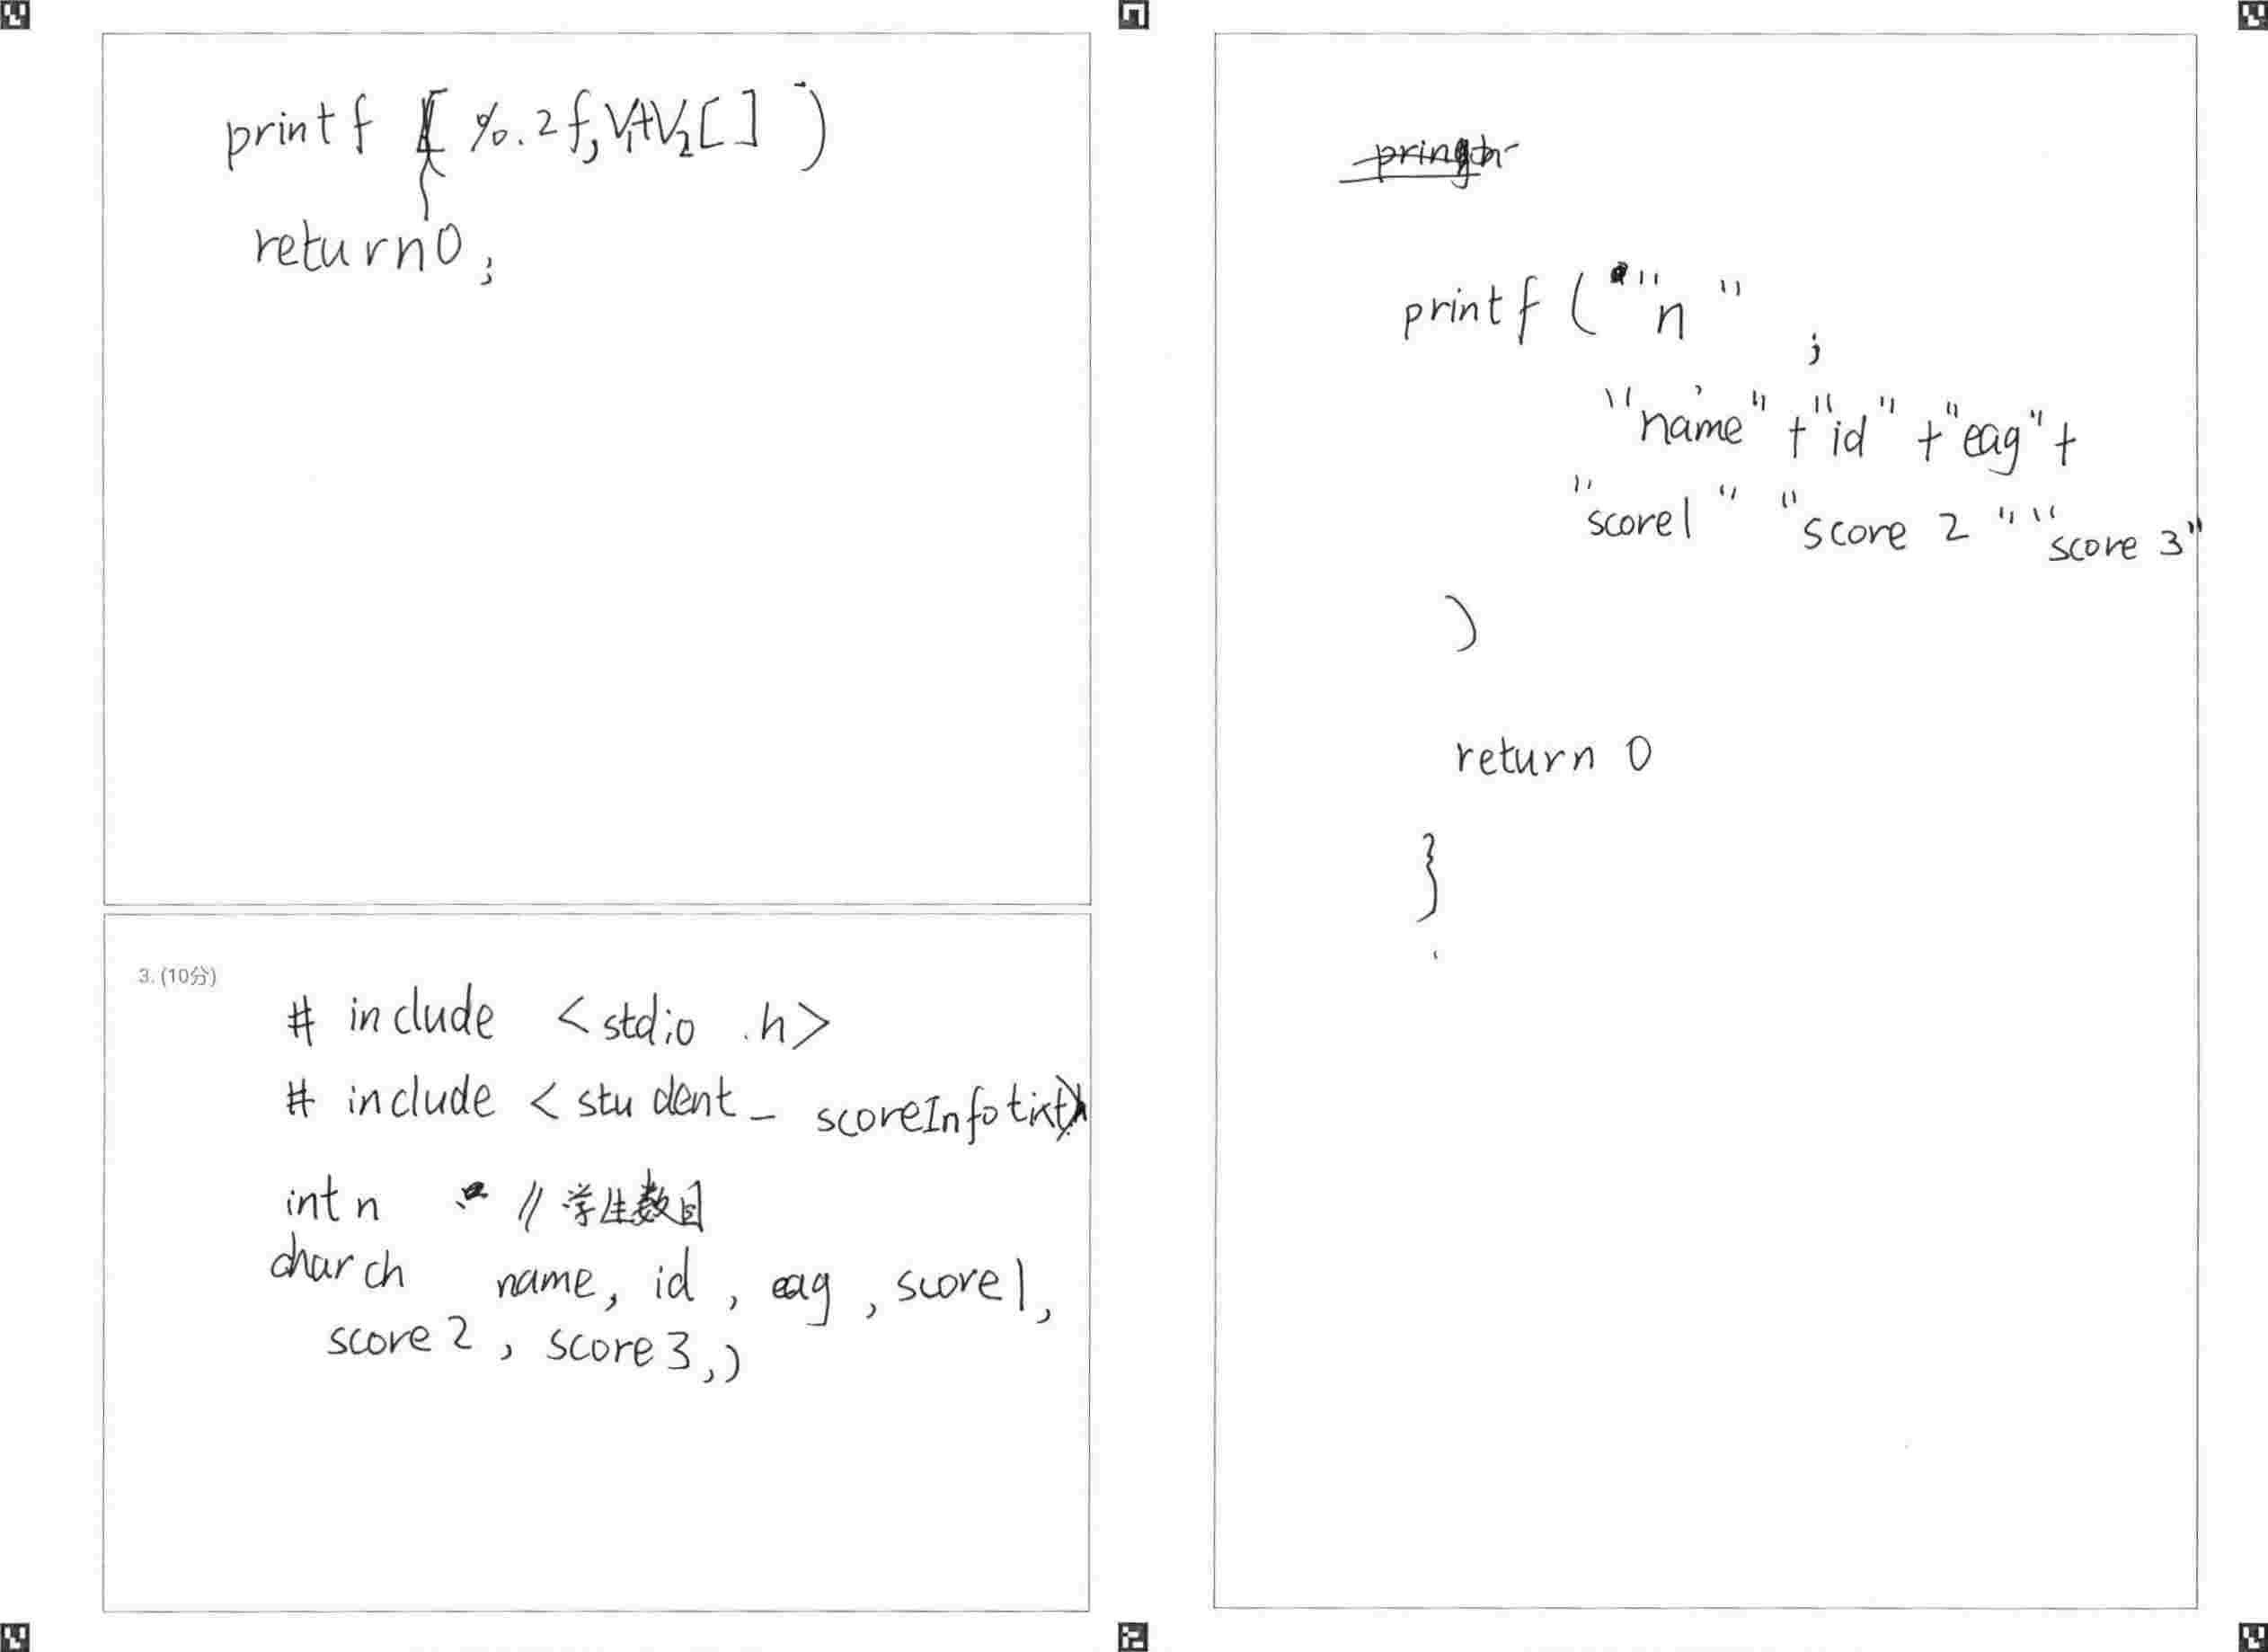 printf ( %.2f, V1+V2[] )
return0;
3. (10分)
# include <stdio .h>
# include < student_ scoreInfo
int n // 学生数目
char ch name, id , eag , score1,
score2 , score3,,)
printf ( "n" ;
"name" + "id" + "eag" +
"score1" "score 2" "score 3"
)
return 0
}